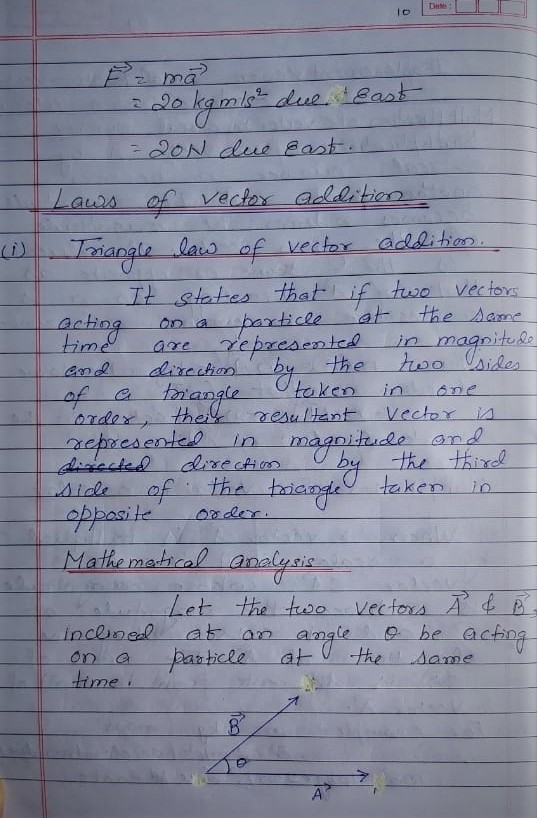 10
Date :
F⃗ = ma⃗
= 20 kgm/s² due East
= 20N due East.
Laws of vector addition
(i) Triangle law of vector addition.
It states that if two vectors
acting on a particle at the same
time are represented in magnitude
and direction by the two sides
of a triangle taken in one
order, their resultant vector is
represented in magnitude and
directed direction by the third
side of the triangle taken in
opposite order.
Mathematical analysis
Let the two vectors A⃗ & B⃗
inclined at an angle θ be acting
on a particle at the same
time.
B⃗
θ
A⃗